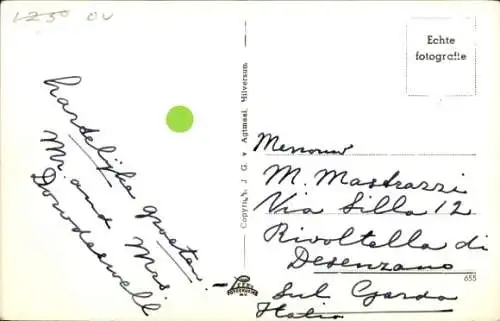 1250 OU
Echte
fotografie
hartelijke groeten
Mr. and Mrs
Dowdeswell
Copyright J. G. v. Agtmaal, Hilversum.
Mevrouw
M. Mastrazzi
Via Silla 12
Rivoltella di
Desenzano
Sul Garda
Italia
655